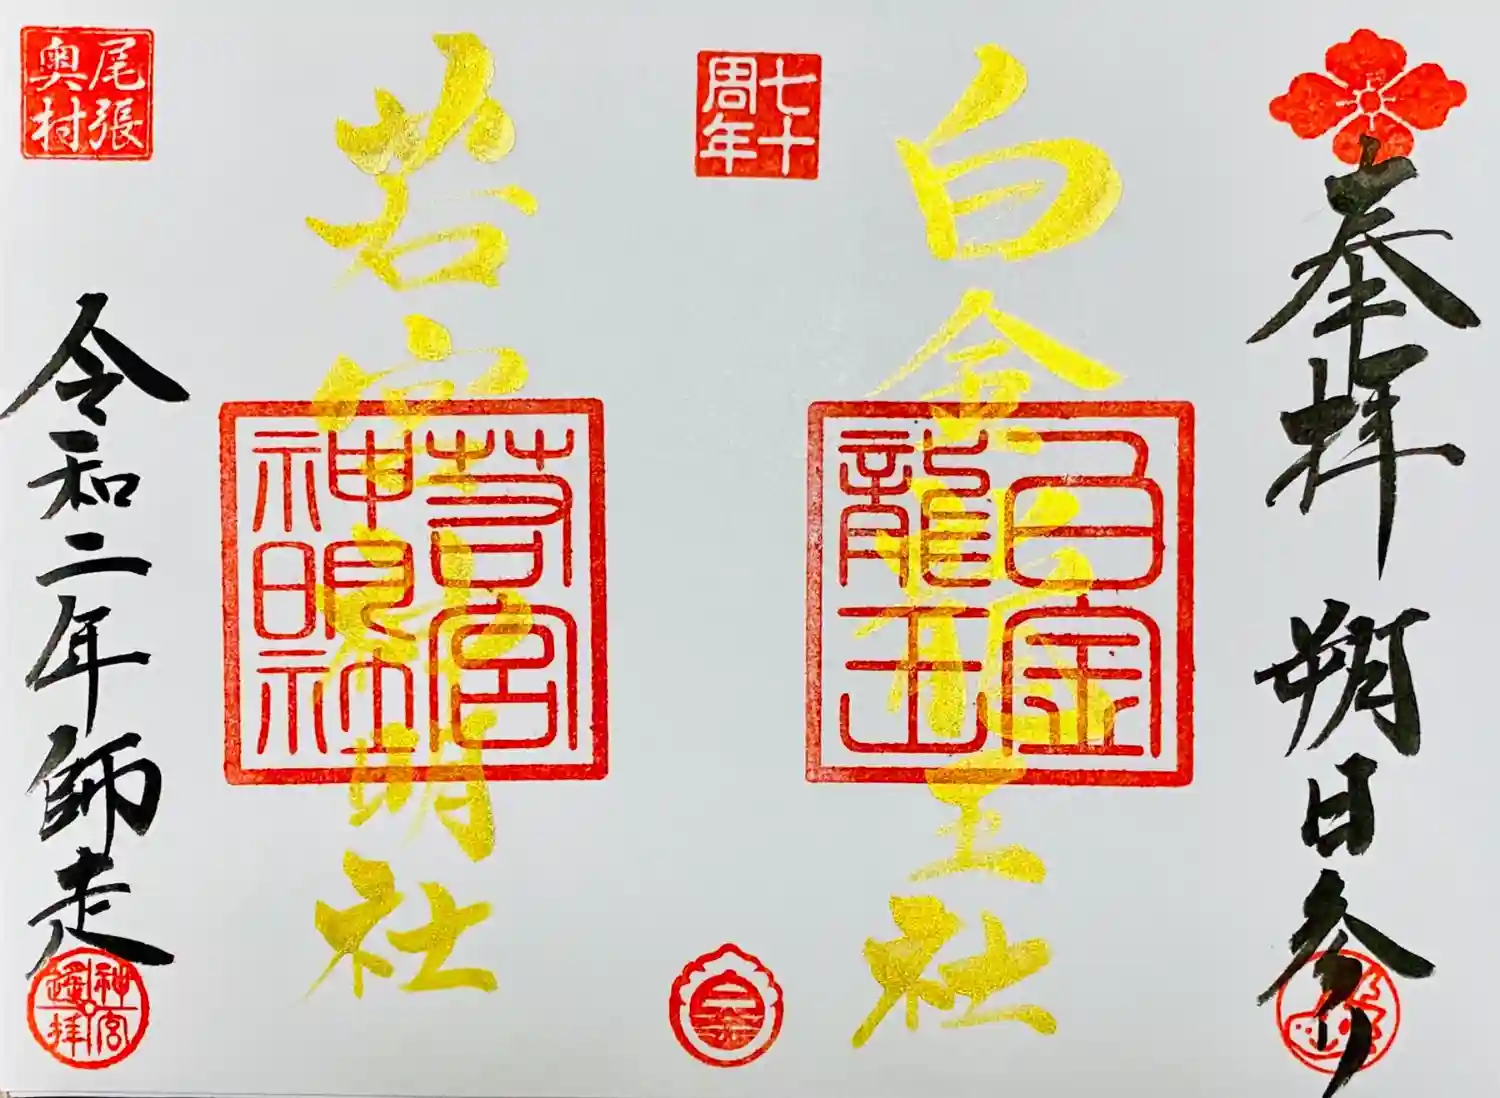 奉拝 朔日参り
白金龍王社
白金
龍王
七十
周年
若宮神明社
若宮
神明社
尾張
奥村
令和二年師走
神宮
遙拝